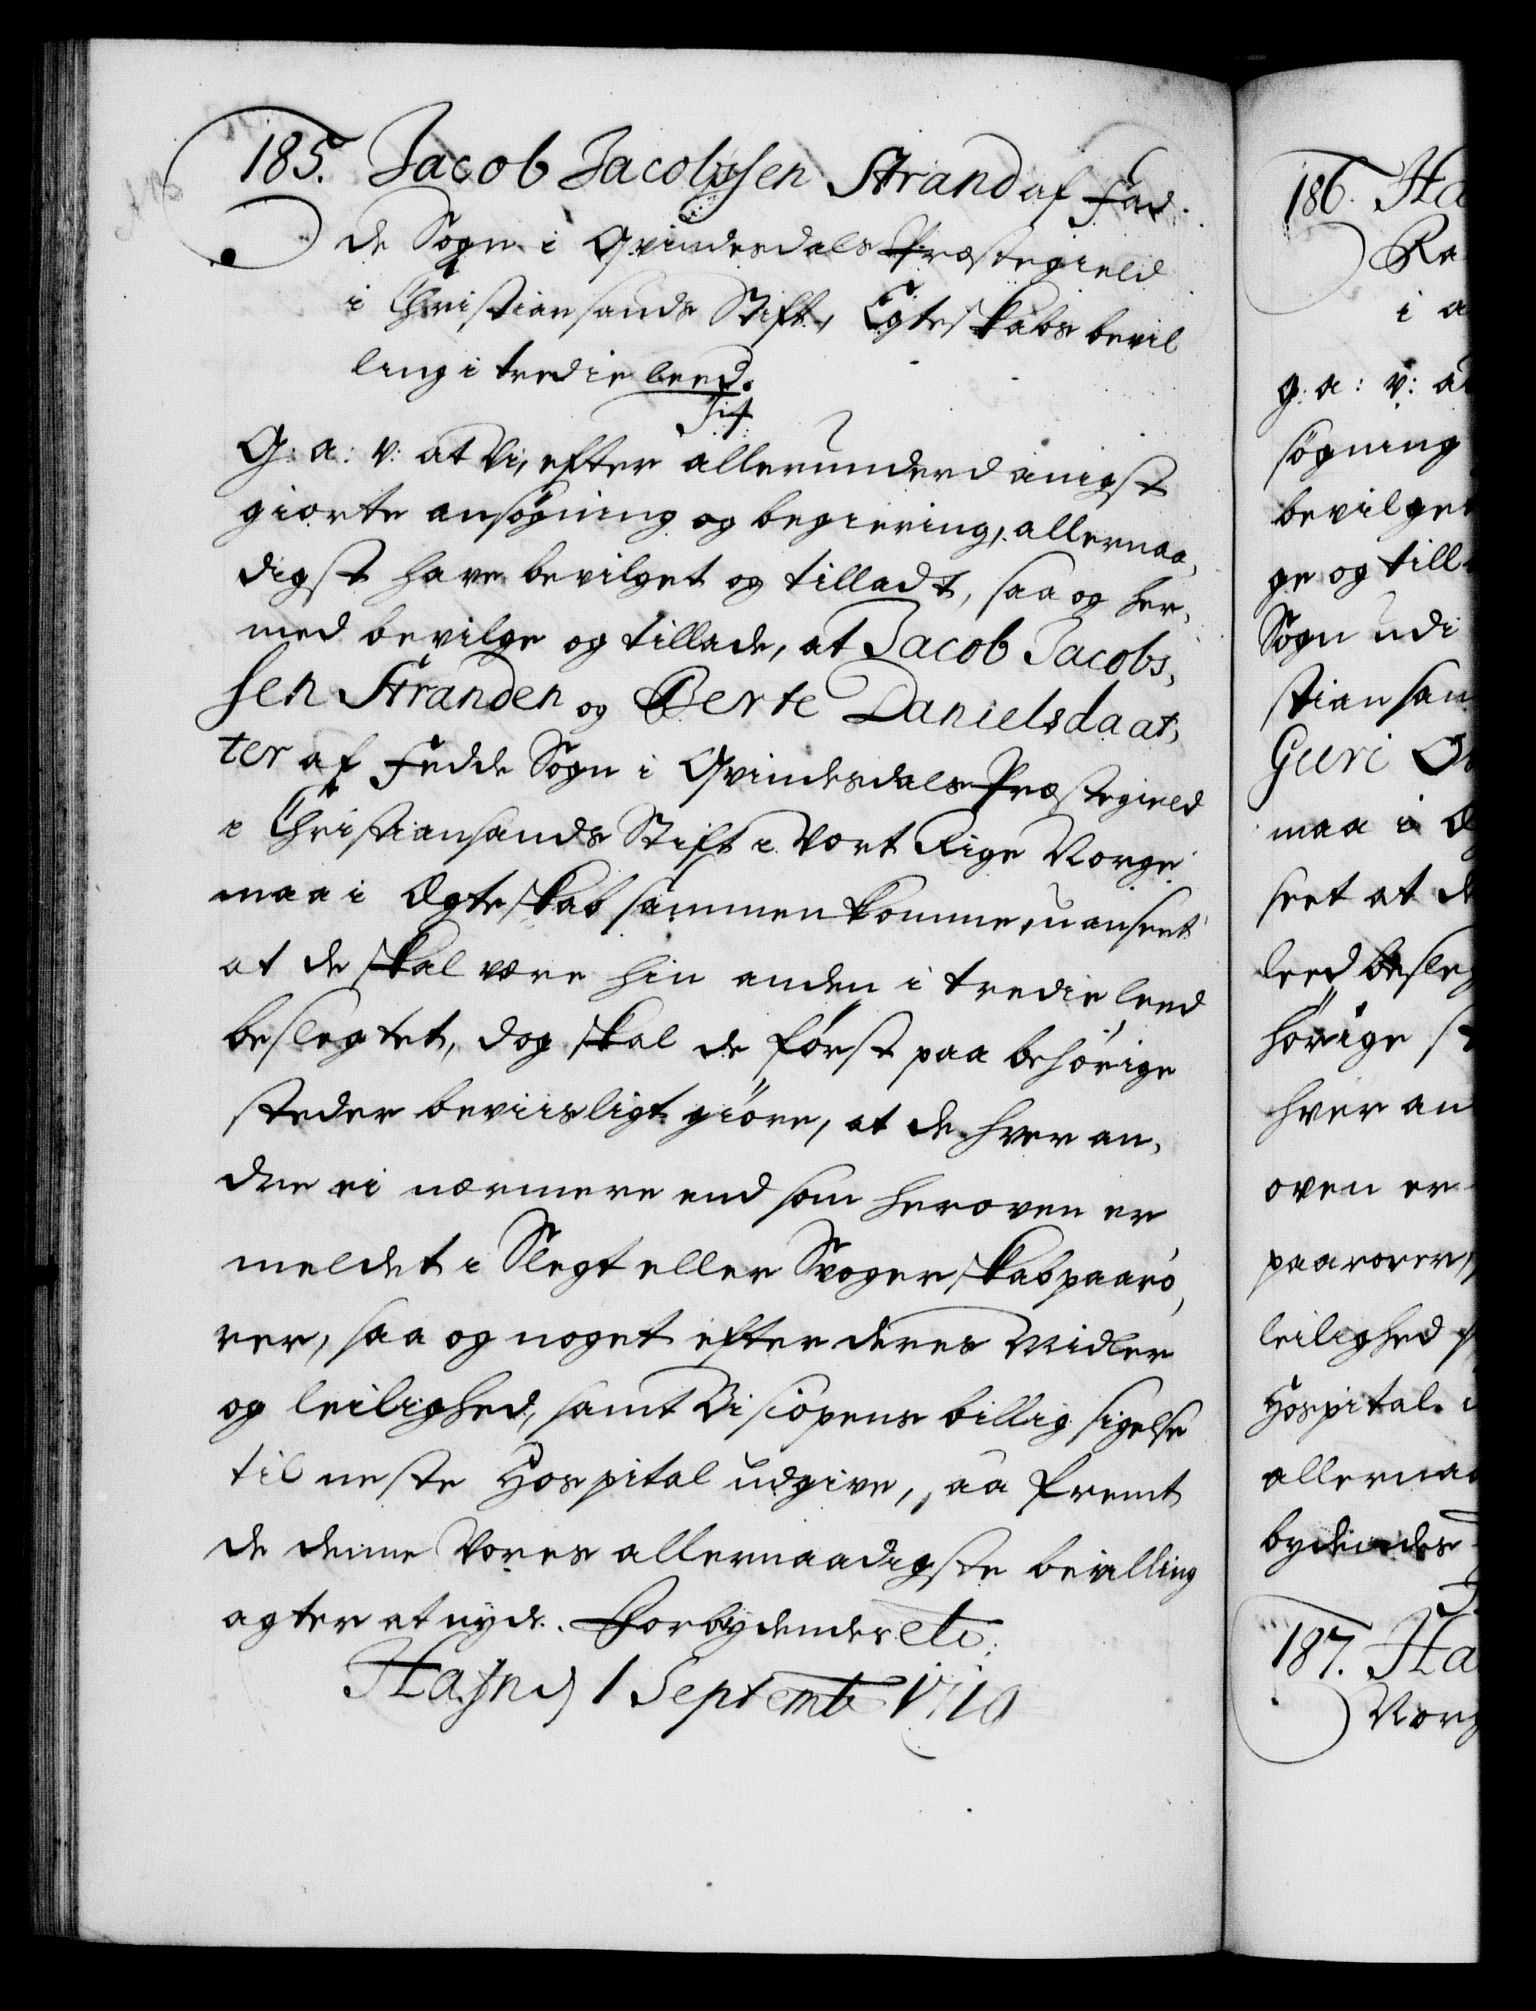 185. Jacob Jacobsen Strand af Fed-
de Sogn i Qvindesdals Præstegield
i Christiansands Stift, Egteskabs bevil
ling i tredie leed.
F: 4
G: a: V: at Vi, efter allerunderdanigst
giorte ansøgning og begiering, allernaa-
digst have bevilget og tilladt, saa og her-
med bevilge og tillade, at Jacob Jacobs-
sen Stranden og Berte Danielsdaat-
ter af Fedde Sogn i Qvindesdals Præstegield
i Christiansands Stift i Vort Rige Norge
maa i Ægteskab sammenkomme, uanseet
at de skal være hin anden i tredie leed
beslegtet, dog skal de først paa behørige
steder beviisligt giøre, at de hver an-
dre ei nærmere end som heroven er
meldet i Slegt eller Svogerskab paarø-
rer, saa og noget efter deres Midler
og leilighed, samt Biscopens billig sigelse
til neste Hospital udgive, saa fremt
de denne Vores allernaadigste bevilling
agter at nyde. Forbydendes etc.
Hafn: d 1 Septemb 1710
186. Ha
Ra
i a
g: a: v: a
søgning
bevilget
ge og till
Sogn udi
stiansan
Guri O
maa i Æ
seet at d
leed besleg
hørige st
hver an
oven er
paarører,
leilighed
Hospital
allernaa
bydendes
187. Ha
Norg